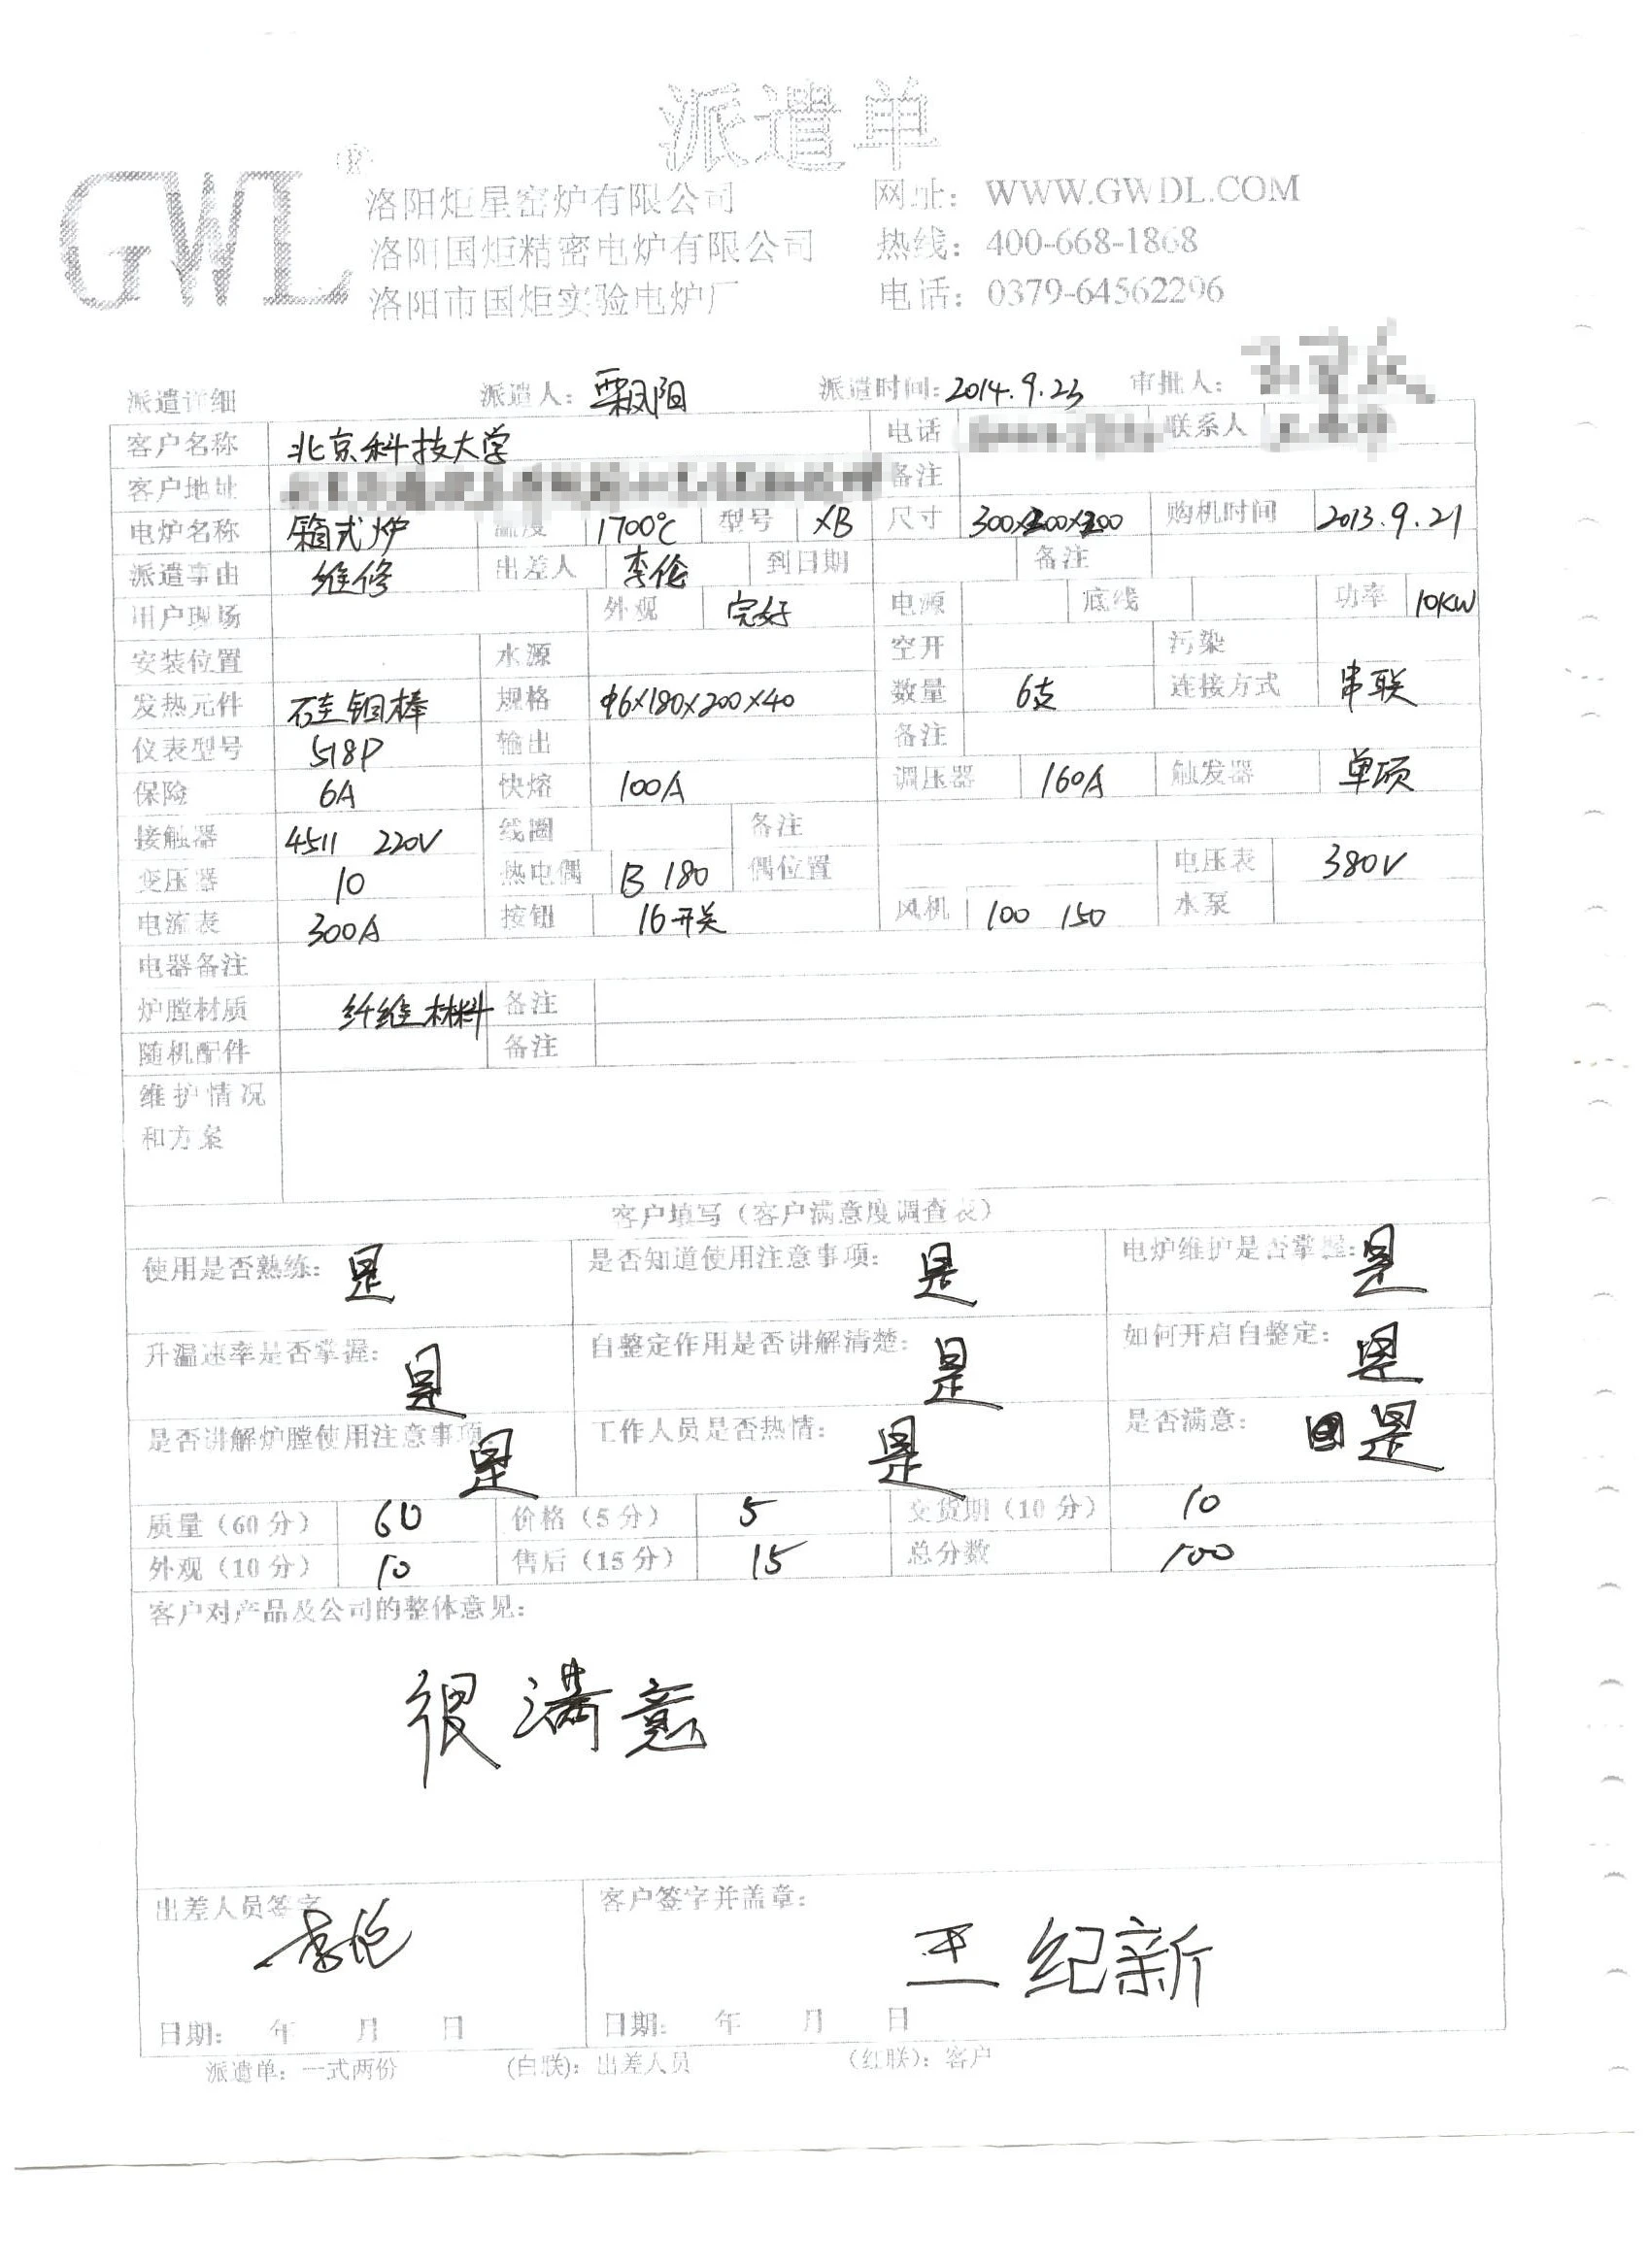 派遣单
GWL®
洛阳炬星窑炉有限公司 网址：WWW.GWDL.COM
洛阳国炬精密电炉有限公司 热线：400-668-1868
洛阳市国炬实验电炉厂 电话：0379-64562296
派遣详细 派遣人：阳 派遣时间：2014.9.23 审批人：
客户名称 北京科技大学 电话 联系人
客户地址 备注
电炉名称 箱式炉 温度 1700℃ 型号 XB 尺寸 300×200×200 购机时间 2013.9.21
派遣事由 维修 出差人 李伦 到日期 备注
用户现场 外观 完好 电源 底线 功率 10KW
安装位置 水源 空开 污染
发热元件 硅钼棒 规格 φ6×180×200×40 数量 6支 连接方式 串联
仪表型号 518P 输出 备注
保险 6A 快熔 100A 调压器 160A 触发器 单项
接触器 4511 220V 线圈 备注
变压器 10 热电偶 B 180 偶位置 电压表 380V
电流表 300A 按钮 16开关 风机 100 150 水泵
电器备注
炉膛材质 纤维材料 备注
随机配件 备注
维护情况
和方案
客户填写（客户满意度调查表）
使用是否熟练：是 是否知道使用注意事项：是 电炉维护是否掌握：是
升温速率是否掌握：是 自整定作用是否讲解清楚：是 如何开启自整定：是
是否讲解炉膛使用注意事项 是 工作人员是否热情：是 是否满意：是
质量（60分） 60 价格（5分） 5 交货期（10分） 10
外观（10分） 10 售后（15分） 15 总分数 100
客户对产品及公司的整体意见：
很满意
出差人员签字 李伦 客户签字并盖章：
王纪新
日期： 年 月 日 日期： 年 月 日
派遣单：一式两份 （白联）：出差人员 （红联）：客户